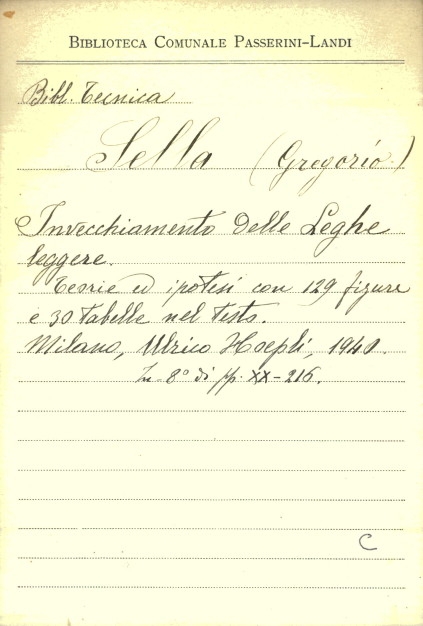 BIBLIOTECA COMUNALE PASSERINI-LANDI
Bibl. Tecnica
Sella (Gregorio)
Invecchiamento delle Leghe
leggere.
Teorie ed ipotesi con 129 figure
e 30 tabelle nel testo.
Milano, Ulrico Hoepli, 1940.
In-8° di pp. XX-216.
C